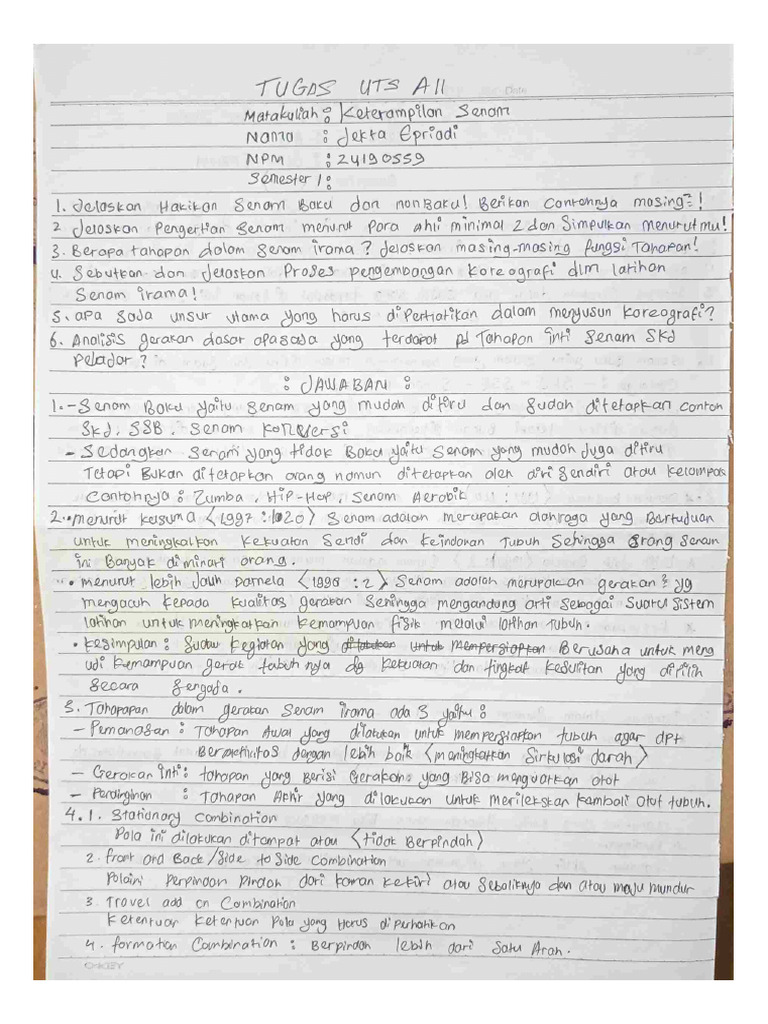 TUGAS UTS A11
Matakuliah : Keterampilan Senam
Nama : Jekta Epriadi
NPM : 24190559
Semester 1 :
1. Jelaskan Hakikan Senam Baku dan nonBaku! Berikan Contohnya masing²!
2 Jelaskan Pengertian Senam menurut Para ahli minimal 2 dan Simpulkan menurutmu!
3. Berapa tahapan dalam Senam irama? Jelaskan masing-masing fungsi Tahapan!
4. Sebutkan dan Jelaskan Proses pengembangan Koreografi dlm latihan
Senam irama!
5. apa saja unsur utama yang harus diperhatikan dalam menyusun Koreografi?
6. Analisis gerakan dasar apasaja yang terdapat pd Tahapan inti Senam Skj
Pelajar?
: JAWABAN :
1. - Senam Baku yaitu Senam yang mudah ditiru dan Sudah ditetapkan contoh
Skj, SSB, Senam Konversi
- Sedangkan Senam yang tidak Baku yaitu Senam yang mudah Juga ditiru
Tetapi Bukan ditetapkan orang namun ditetapkan oleh diri Sendiri atau Kelompok
Contohnya : Zumba, Hip-Hop, Senam Aerobik
2. • menurut Kusuma (1997 : 120) Senam adalah merupakan olahraga yang Bertujuan
untuk meningkatkan Kekuatan Sendi dan Keindahan Tubuh Sehingga Orang Senam
ini Banyak diminati orang.
• menurut lebih Jauh Pamela (1998 : 2) Senam adalah merupakan gerakan² yg
mengacuh Kepada Kualitas gerakan Sehingga mengandung arti Sebagai Suatu Sistem
latihan untuk meningkatkan Kemampuan fisik melalui latihan Tubuh.
• Kesimpulan : Suatu Kegiatan yang dilakukan untuk mempersiapkan Berusaha untuk meng
udi Kemampuan gerak tubuhnya dg Kekuatan dan tingkat Kesulitan yang dipilih
Secara Sengaja.
3. Tahapapan dalam gerakan Senam irama ada 3 yaitu :
- Pemanasan : Tahapan Awal yang dilakukan untuk mempersiapkan tubuh agar dpt
Beraktivitas dengan lebih baik (meningkatkan Sirkulasi darah)
- Gerakan inti : tahapan yang berisi Gerakan² yang Bisa menguatkan otot
- Pendinginan : Tahapan Akhir yang dilakukan untuk merilekskan kambali Otot tubuh.
4. 1. Stationary Combination
Pola ini dilakukan ditempat atau (tidak Berpindah)
2. Front and Back/Side to Side Combination
Polaini Perpindan Pindah dari Kanan Kekiri atau Sebaliknya dan atau maju mundur
3 Travel add on Combination
Ketentuan Ketentuan Pola yang Harus diperhatikan
4. formation Combination : Berpindah lebih dari Satu Arah.